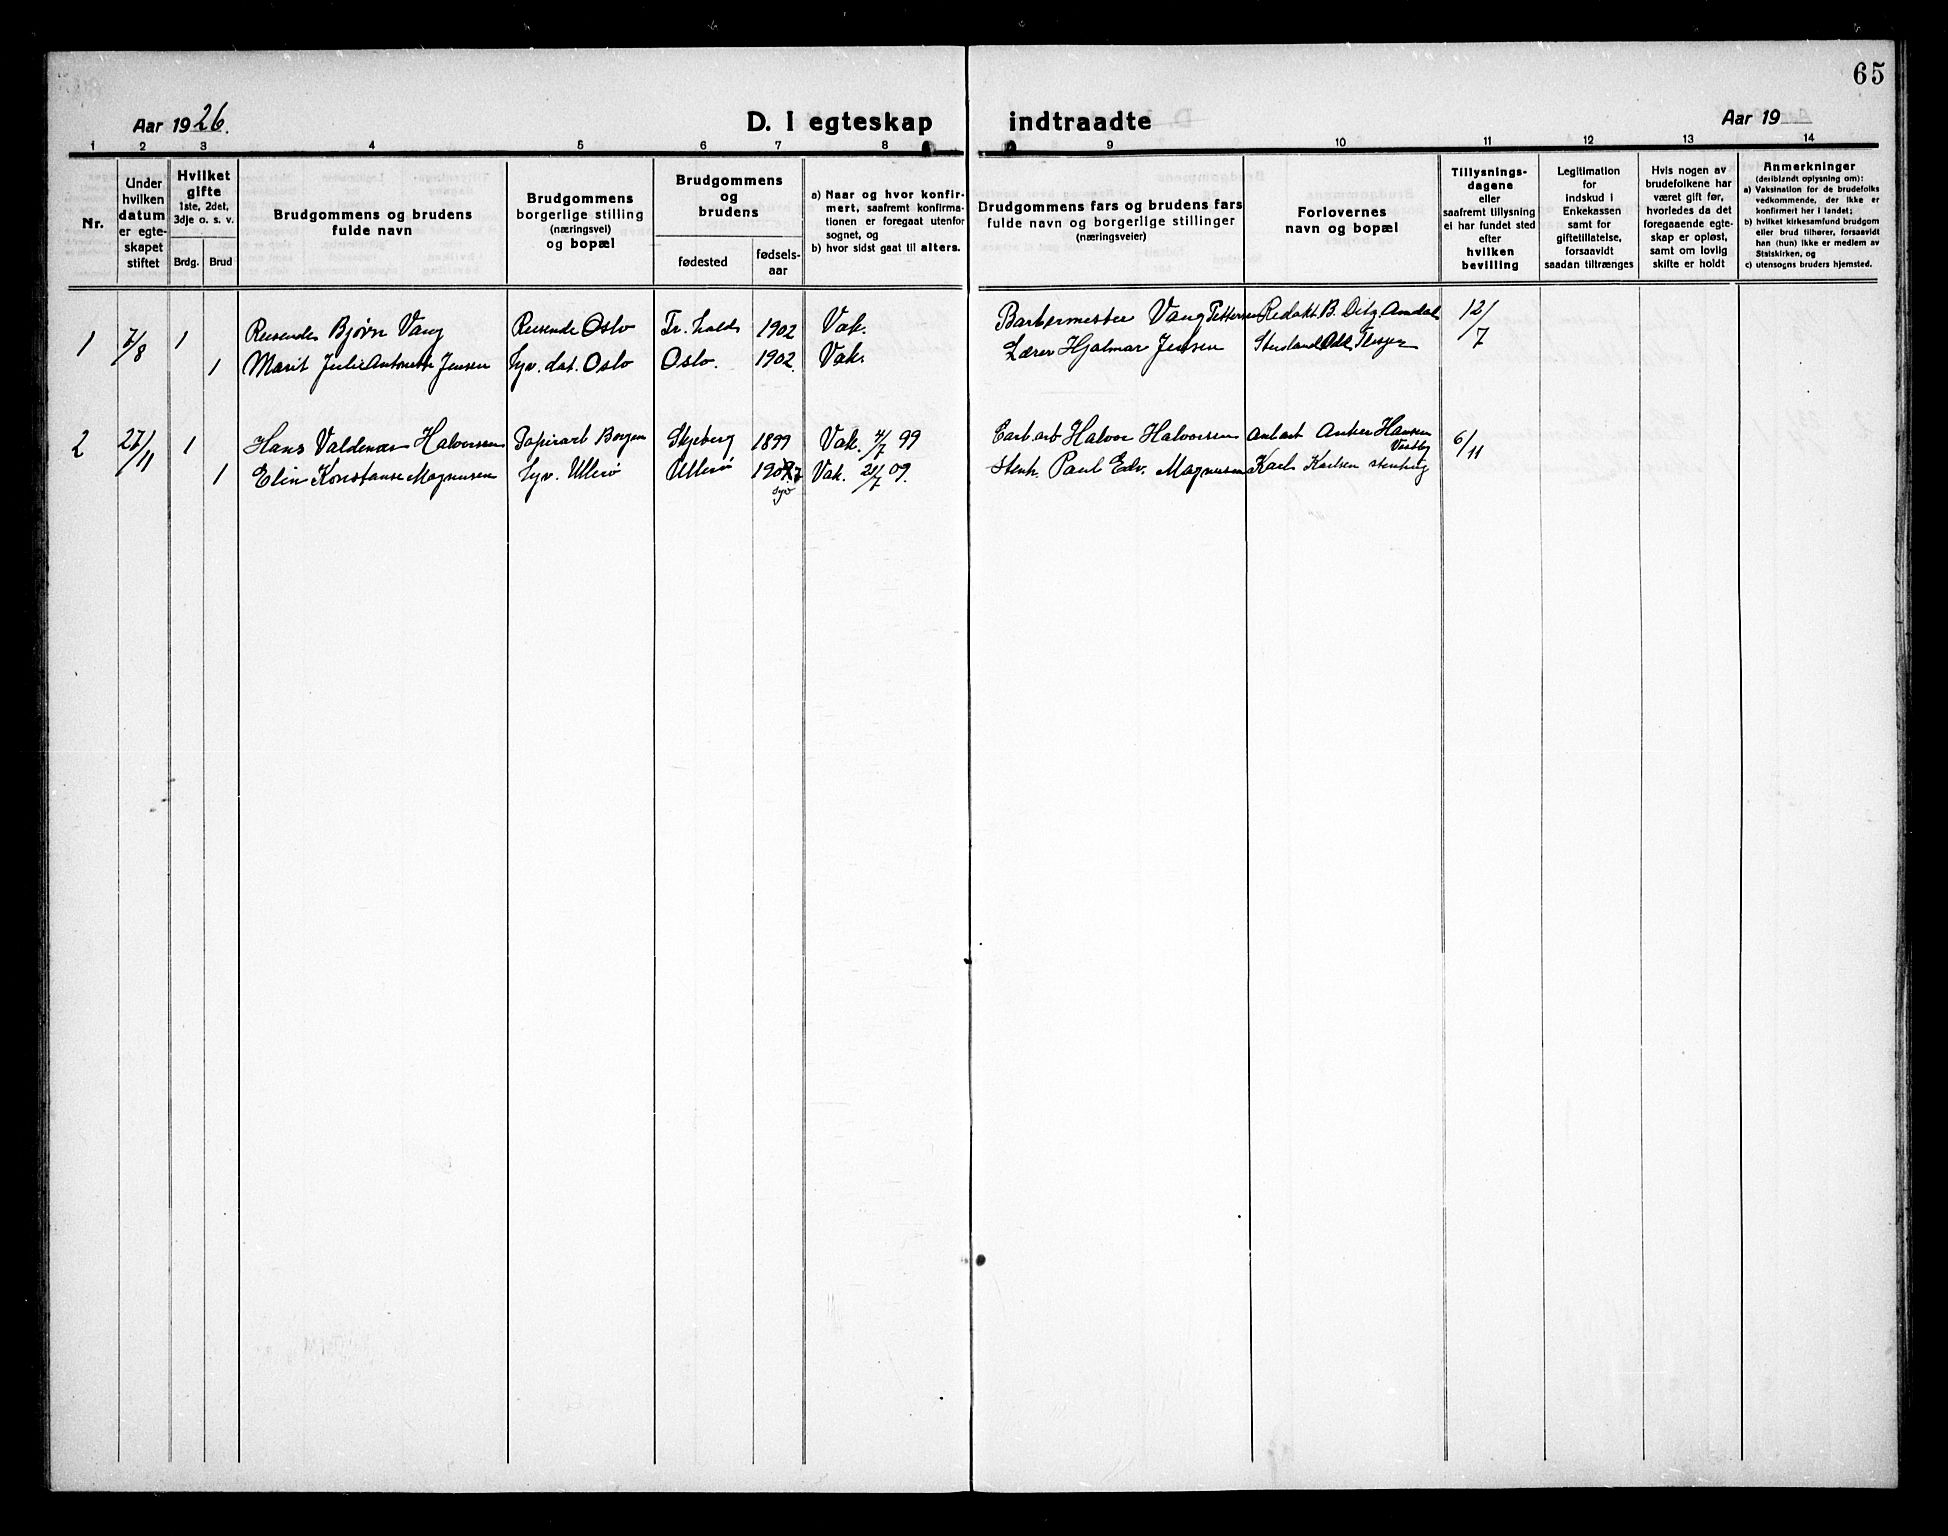 65
Aar 1926.
D. I egteskap indtraadte
Aar 19
1 2 3 4 5 6 7 8 9 10 11 12 13 14
Nr.
Under
hvilken
datum
er egte-
skapet
stiftet
Hvilket
gifte
1ste, 2det,
3dje o. s. v.
Brdg. Brud
Brudgommens og brudens
fulde navn
Brudgommens
borgerlige stilling
(næringsvei)
og bopæl
Brudgommens
og
brudens
fødested
fødsels-
aar
a) Naar og hvor konfir-
mert, saafremt konfirma-
tionen er foregaat utenfor
sognet, og
b) hvor sidst gaat til alters.
Brudgommens fars og brudens fars
fulde navn og borgerlige stillinger
(næringsveier)
Forlovernes
navn og bopæl
Tillysnings-
dagene
eller
saafremt tillysning
ei har fundet sted
efter
hvilken
bevilling
Legitimation
for
indskud i
Enkekassen
samt for
giftetillatelse,
forsaavidt
saadan tiltrænges
Hvis nogen av
brudefolkene har
været gift før,
hvorledes da det
foregaaende egte-
skap er opløst,
samt om lovlig
skifte er holdt
Anmerkninger
(deriblandt oplysning om):
a) Vaksination for de brudefolks
vedkommende, der ikke er
konfirmert her i landet;
b) hvilket kirkesamfund brudgom
eller brud tilhører, forsaavidt
han (hun) ikke er medlem av
Statskirken, og
c) utensogns bruders hjemsted.
1 7/8 1 Reisende Bjørn Vang Reisende Oslo Fr. hald 1902 Vak. Barbermester Vang Pettersen Redakt. B. Ditz Amdal 12/7
1 Marit Julie Antonette Jensen Syv. dat. Oslo Oslo. 1902. Vak. Lærer Hjalmar Jensen
2 27/11 1 Hans Valdemar Halvorsen Papirarb Borgen Skjeberg 1899 Vak. 4/7 99 Halvor Halvorsen Anker Hansen 6/11
Vestby
1 Elin Konstanse Magnusen Syv. Ullerø Ullerø Vak. 21/7 09. Stenh. Paul Edv. Magnusen Karl Karlsen stenhug
syv